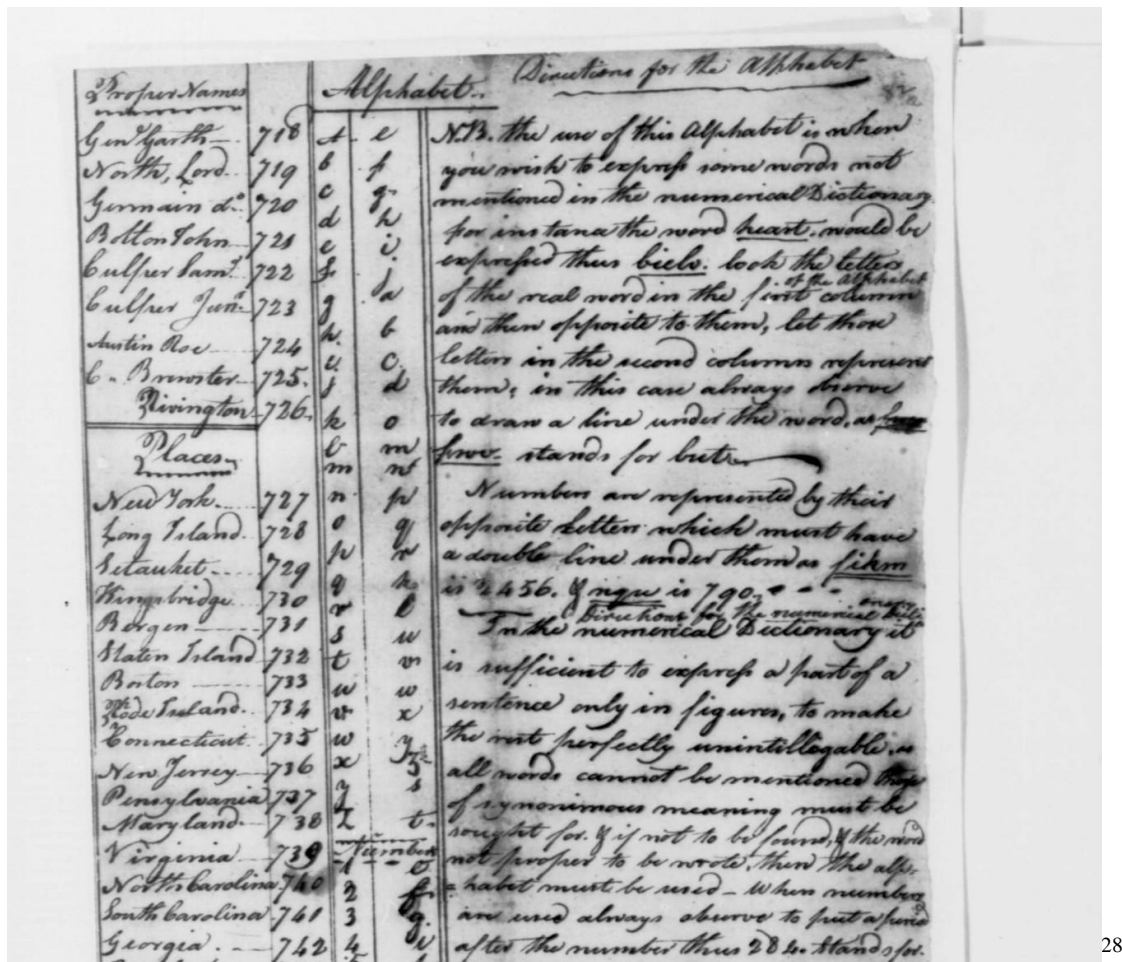 Proper Names
Gen.l Garth 718
North, Lord 719
Germain do. 720
Bolton John 721
Culper Sam.l 722
Culper Jun.r 723
Austin Roe 724
C. Brewster 725.
Rivington 726.
Places
New York 727
Long Island 728
Setauket 729
Kingsbridge 730
Bergen 731
Staten Island 732
Boston 733
Rhode Island 734
Connecticut 735
New Jersey 736
Pensylvania 737
Maryland 738
Virginia 739
North Carolina 740
South Carolina 741
Georgia 742
Alphabet
a e
b f
c g
d h
e i
f j
g a
h b
i c
j d
k o
l m
m n
n p
o q
p r
q k
r l
s u
t v
u w
v x
w y
x z
y s
z t
Numbers
1 e
2 f
3 g
4 i
Directions for the Alphabet
N.B. the use of this Alphabet is when
you wish to express some words not
mentioned in the numerical Dictionary
for instance the word heart. would be
expressed thus bielv. look the letters
of the real word in the first column of the Alphabet
and then opposite to them, let those
letters in the second column represent
them; in this case always observe
to draw a line under the word, as
fwv. stands for but
Numbers are represented by their
opposite Letters which must have
a double line under them as fikm
is 2456. & nqu is 790.
Directions for the numerical
In the numerical Dictionary it
is sufficient to express a part of a
sentence only in figures, to make
the rest perfectly unintillegable, as
all words cannot be mentioned those
of synonimous meaning must be
sought for. & if not to be found, & the word
not proper to be wrote, then the alp-
=habet must be used – When numbers
are used always observe to put a period
after the number thus 284. stands for
28